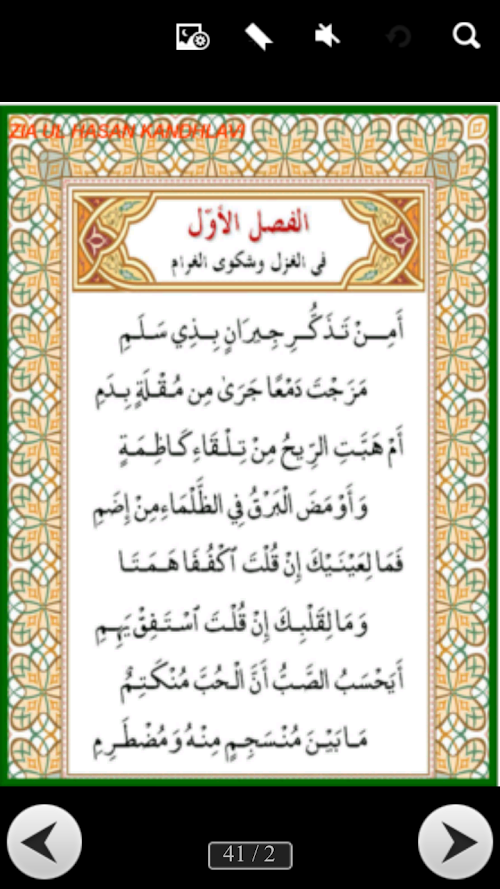 ZIA UL HASAN KANDHLAVI
الفصل الأوّل
في الغزل وشكوى الغرام
أَمِـنْ تَذَكُّـرِ جِيرَانٍ بِـذِي سَـلَـمِ
مَزَجْتَ دَمْعًا جَرَىٰ مِن مُـقْـلَةٍ بِـدَمِ
أَمْ هَبَّتِ الرِّيحُ مِنْ تِـلْـقَاءِ كَـاظِـمَـةٍ
وَأَوْمَضَ الْبَرْقُ فِي الظَّلْمَاءِ مِنْ إِضَمِ
فَمَا لِعَيْنَيْكَ إِنْ قُلْتَ ٱكْفُفَا هَـمَـتَـا
وَمَا لِقَلْبِـكَ إِنْ قُلْـتَ ٱسْـتَـفِـقْ يَهِـمِ
أَيَحْسَبُ الصَّبُّ أَنَّ الْحُبَّ مُنْكَـتِـمٌ
مَـا بَيْـنَ مُنْسَجِـمٍ مِنْـهُ وَمُضْطَـرِمِ
41 / 2